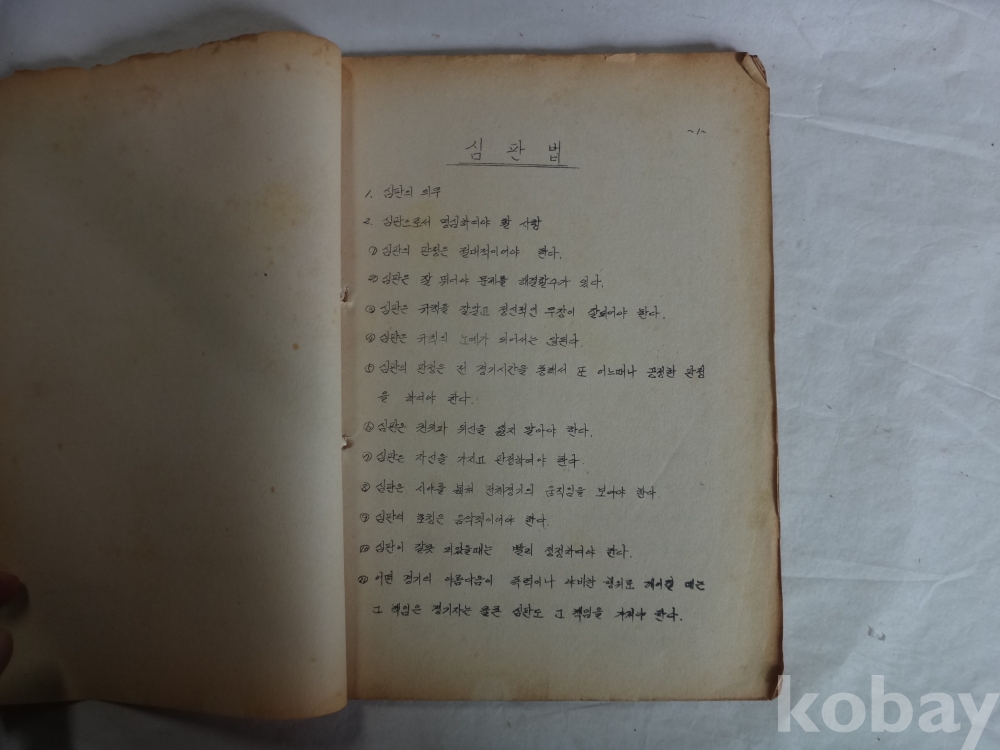 ~1~
심 판 법
1. 심판의 의무
2. 심판으로서 명심하여야 할 사항
① 심판의 판정은 절대적이어야 한다.
② 심판은 잘 뛰어야 문제를 해결할수가 있다.
③ 심판은 규칙을 잘알고 정신적인 무장이 잘되어야 한다.
④ 심판은 규칙의 노예가 되어서는 안된다.
⑤ 심판의 판정은 전 경기시간을 통해서 또 어느때나 공정한 판정
을 하여야 한다.
⑥ 심판은 권위와 위신을 잃지 말아야 한다.
⑦ 심판은 자신을 가지고 판정하여야 한다
⑧ 심판은 시야를 넓혀 전체경기의 움직임을 보아야 한다
⑨ 심판의 은 음악적이어야 한다.
⑩ 심판이 잘못 때는 빨리 정정하여야 한다.
⑪ 어떤 경기의 아름다움이 폭력이나 야비한 행위로 때는
그 책임은 경기자는 물론 심판도 그 책임을 가져야 한다.
kobay